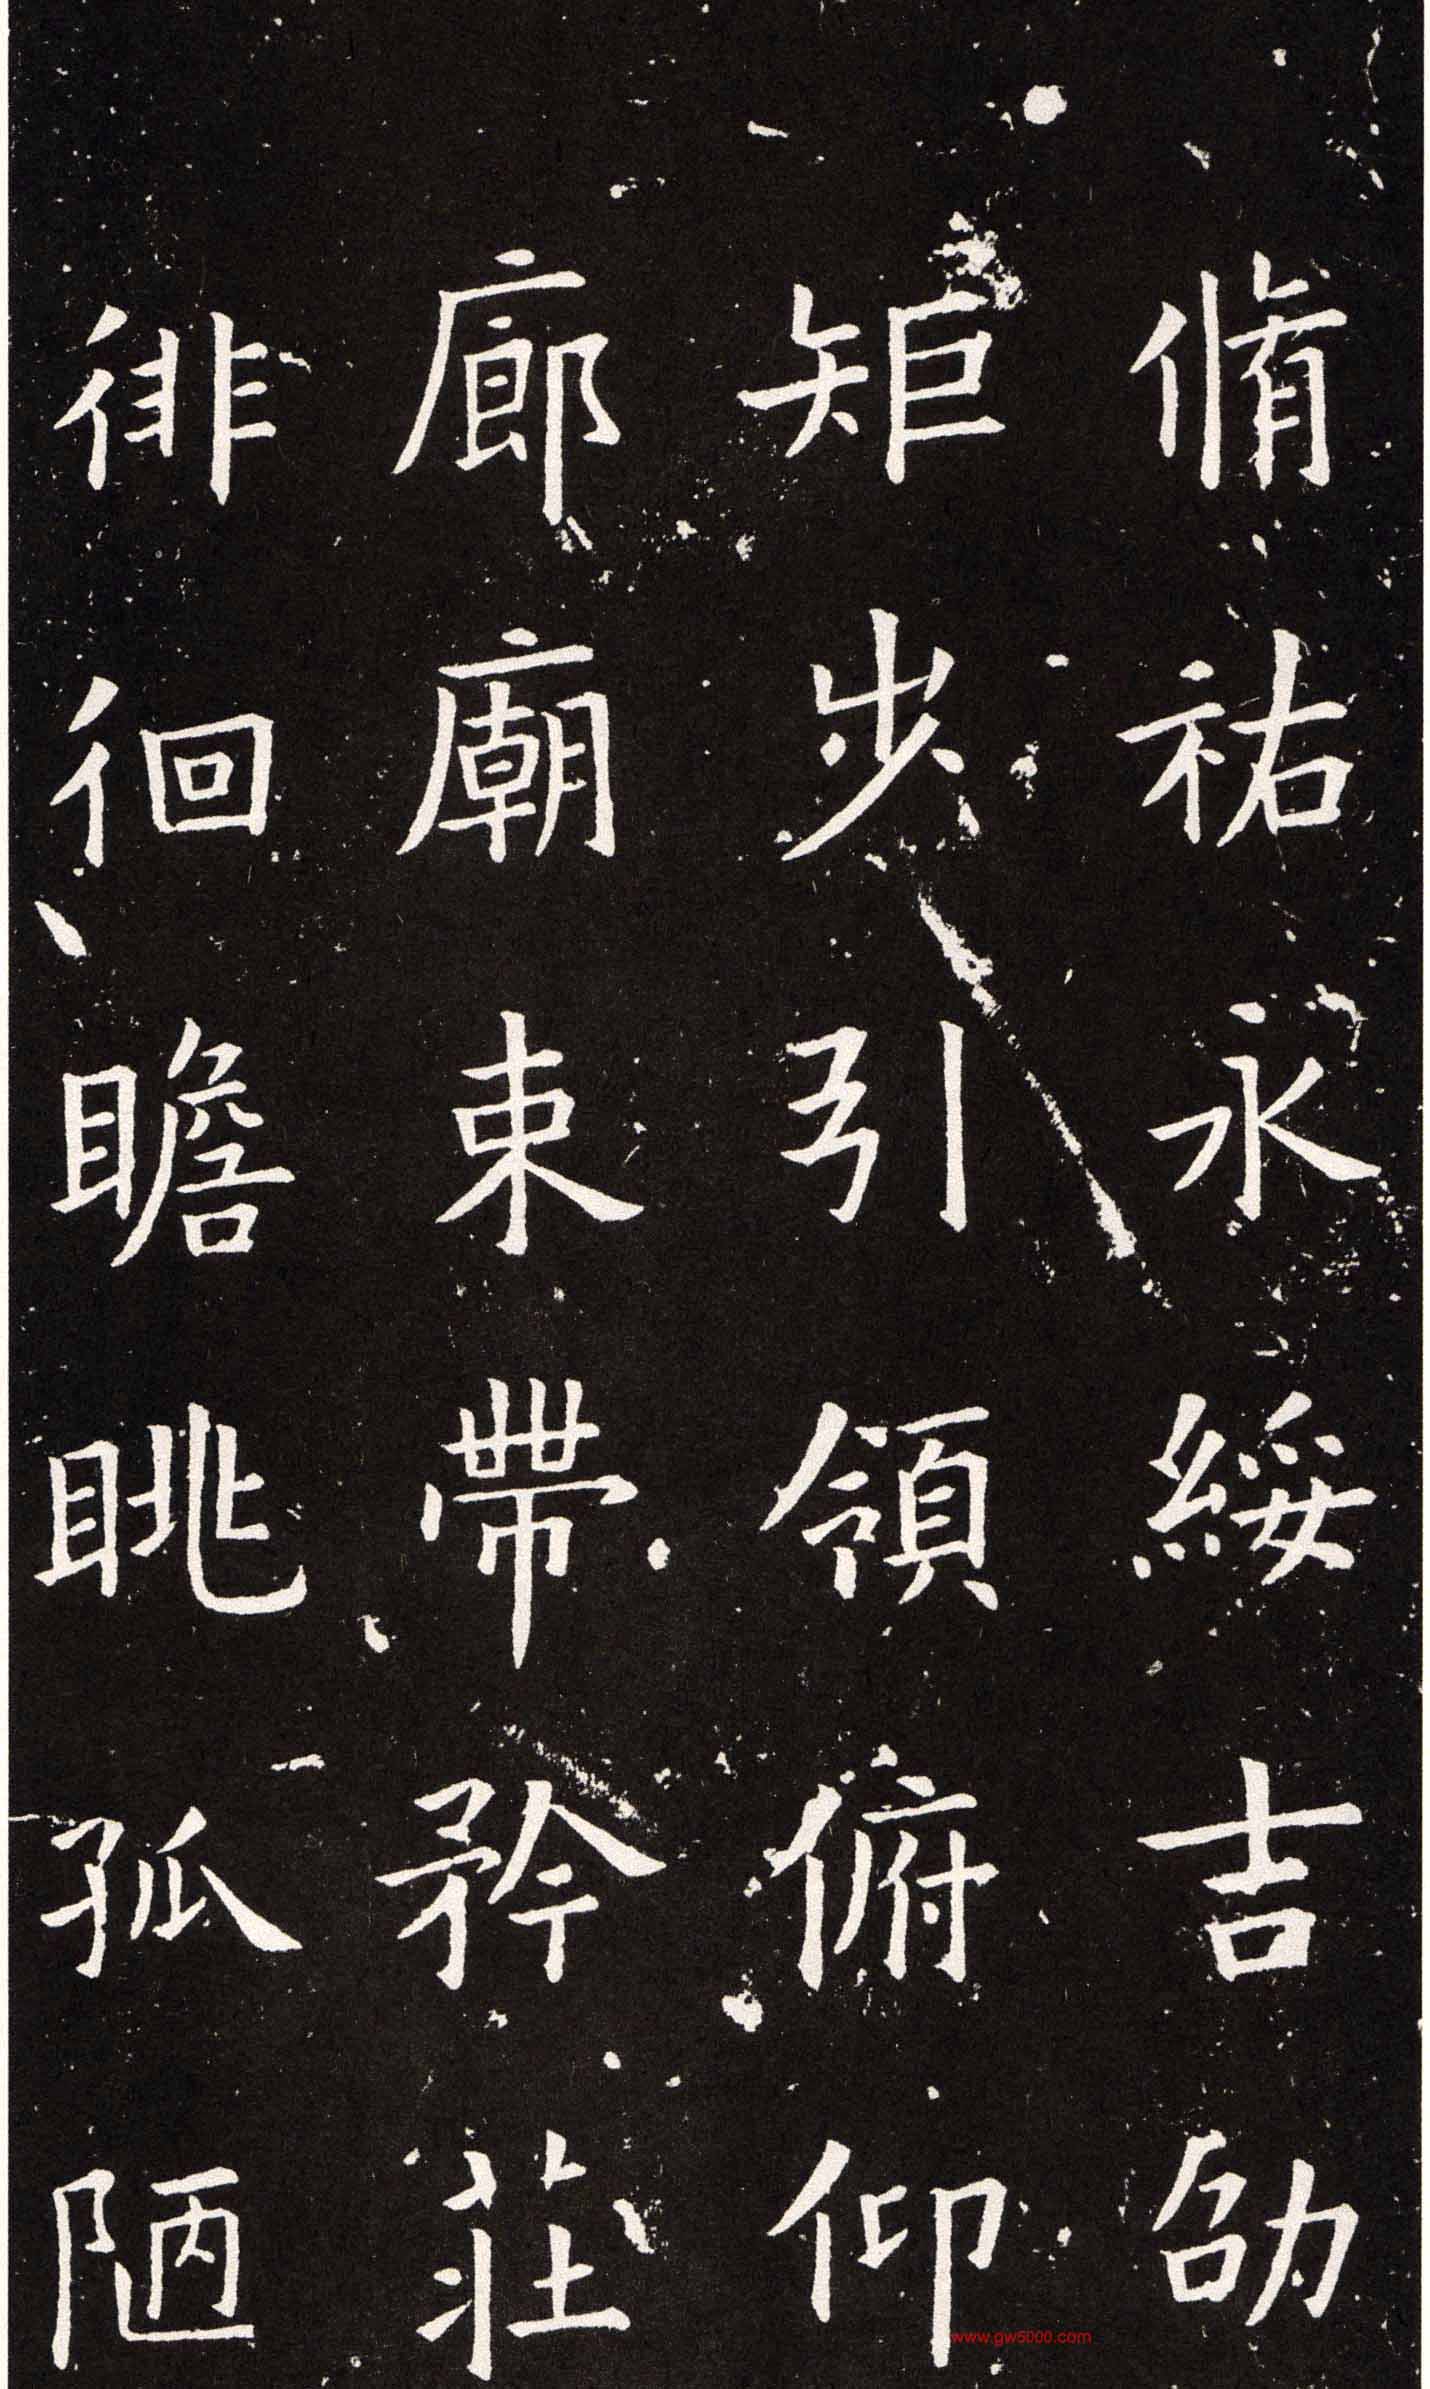 脩祐永綏吉劭
矩步引領俯仰
廊廟束帶矜莊
徘徊瞻眺孤陋
www.gw5000.com